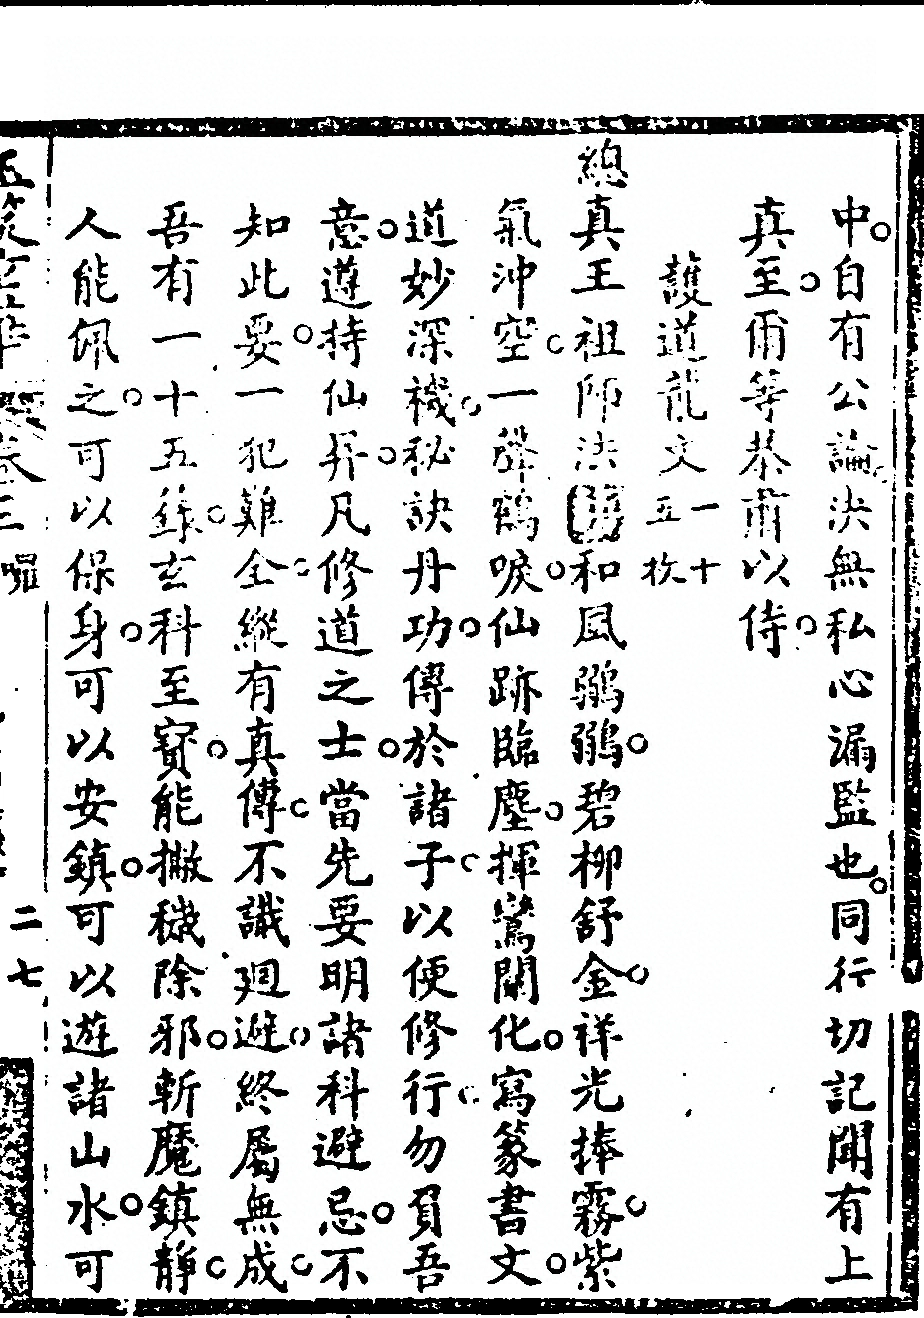 中。自有公論決無私心漏監也。同行切記聞有上
真至。爾等恭甫以侍。
護道龍文一十五枚
總真王祖師法和風鸂鸂。碧柳舒金。祥光捧霧。紫
氣沖空。一聲鶴唳。仙跡臨塵。揮鸞闡化。寫篆書文。
道妙深機。秘訣丹功。傳於諸子。以便修行。勿負吾
意。遵持仙弄。凡修道之士。當先要明諸科避忌。不
知此要。一犯難全。縱有真傳。不識廻避。終屬無成。
吾有一十五籙。玄科至寶。能撇穢除邪。斬魔鎮靜。
人能佩之。可以保身。可以安鎮。可以遊諸山水。可
卷三
二七